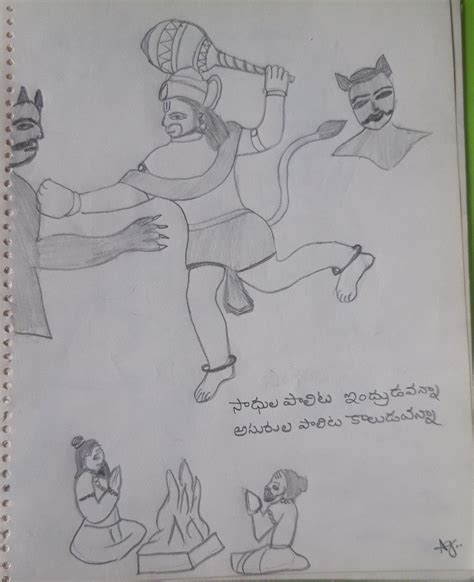 సాధుల పాలిట ఇంద్రుడవన్నా
అసురుల పాలిట కాలుడవన్నా